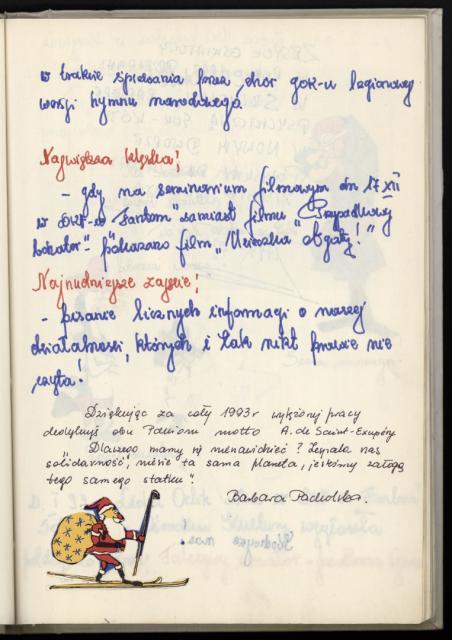 w trakcie śpiewania przez chór GOK-u legionowej
wersji hymnu narodowego.
Największa klęska!
- gdy na seminarium filmowym dn 17 XII
w DKF-ie "Fantom" zamiast filmu "Przypadkowy
- pokazano film "Mieszka obgały!"
Najnudniejsze zajęcie!
- pisanie licznych informacji o naszej
działalności, których i tak nikt prawie nie
czyta!
Dziękując za cały 1993 r wytężonej pracy
dedykuję obu Paniom motto A. de Saint-Exupéry
"Dlaczego mamy się nienawidzieć? Łączy nas
solidarność, niesie ta sama planeta, jesteśmy załogą
tego samego statku"
Barbara